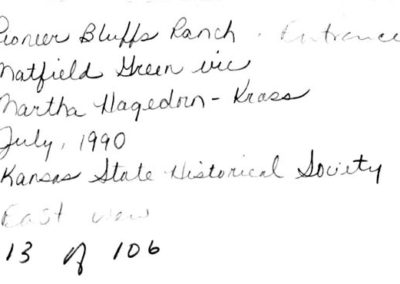 Pioneer Bluffs Ranch - Entrance
Matfield Green vic
Martha Hagedorn-Krass
July, 1990
Kansas State Historical Society
East view
13 of 106